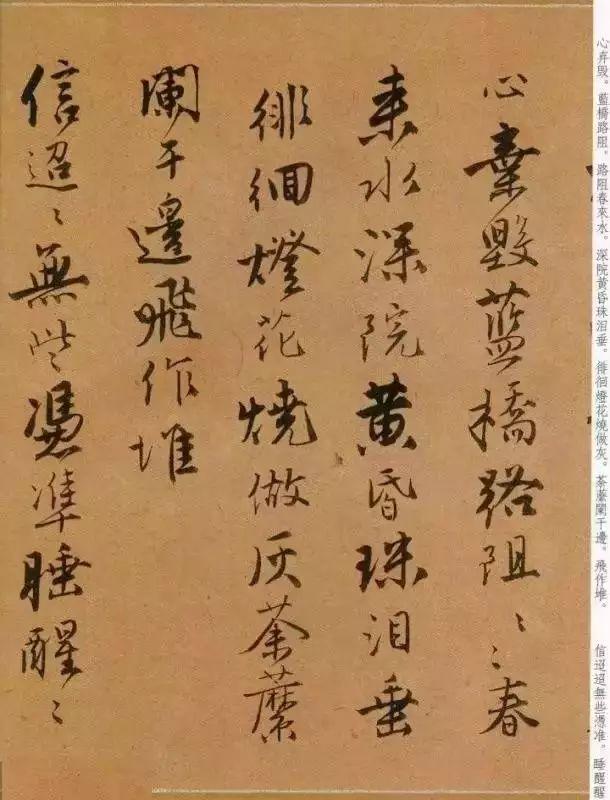 心弃毁。藍橋路阻。路阻春來水。深院黄昏珠泪垂。徘徊燈花燒做灰。荼蘼闌干邊。飛作堆。
信迢迢無些憑准。睡醒醒
心棄毁藍橋路阻〻〻春
来水深院黄昏珠泪垂
徘徊燈花燒做灰荼蘼
闌干邊飛作堆
信迢〻無些憑準睡醒〻